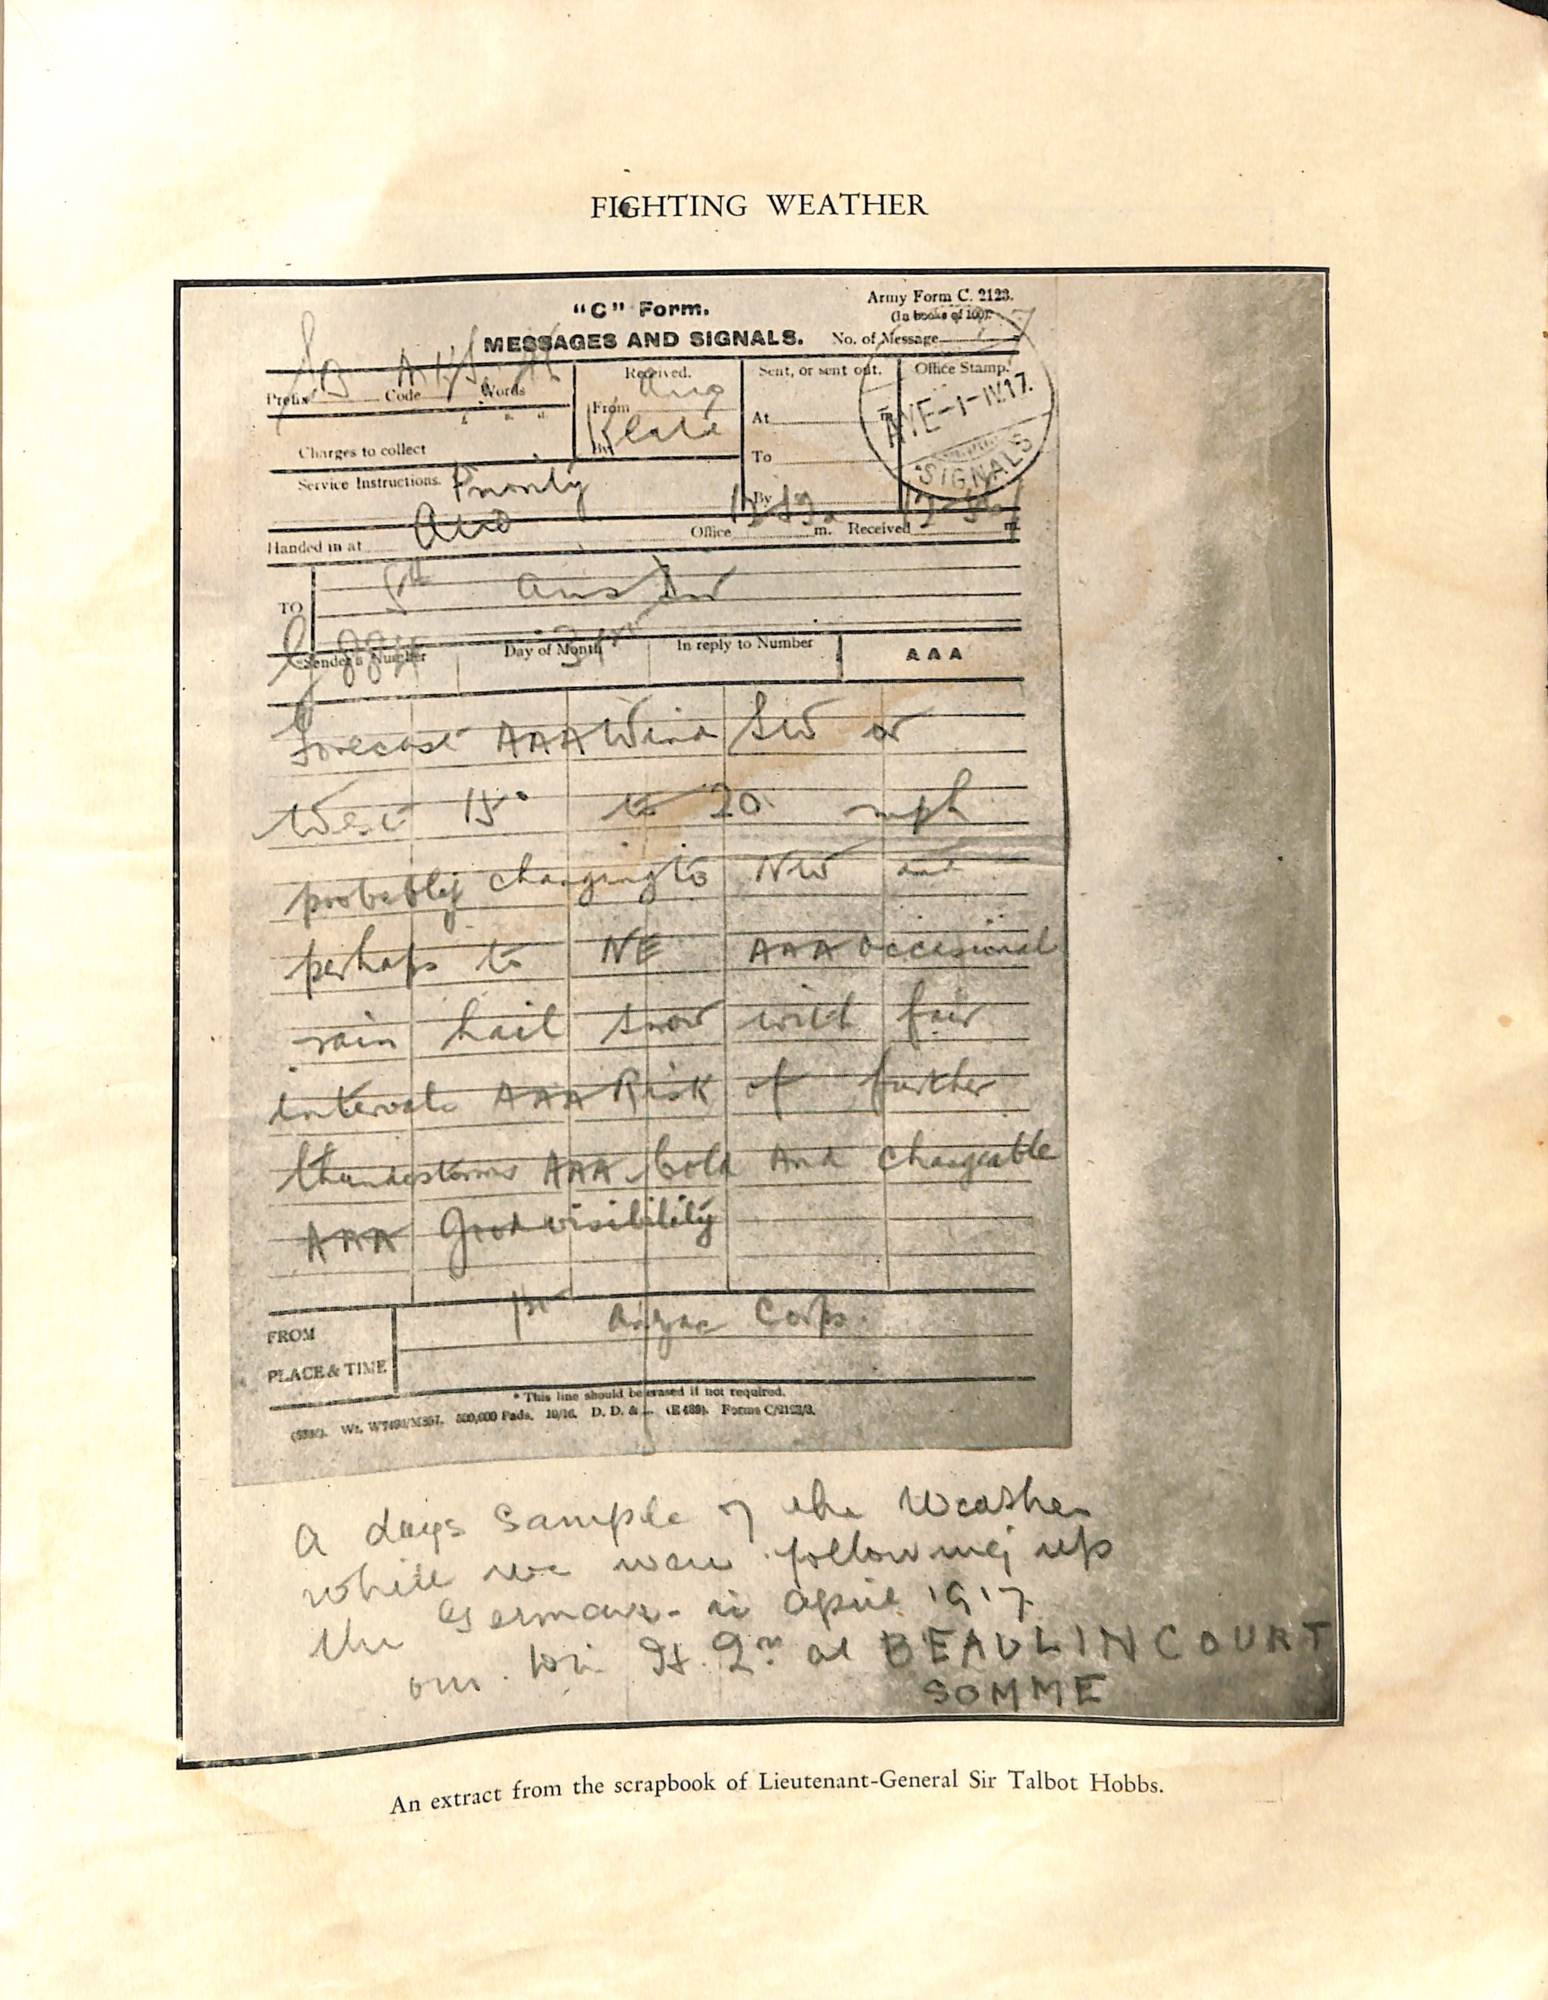 FIGHTING WEATHER
"C" Form.
Army Form C. 2123.
(In books of 100).
MESSAGES AND SIGNALS.
No. of Message
Prefix Code Words
Received.
Sent, or sent out.
Office Stamp.
£ s. d.
From
At m.
AYE-1-IV.17.
Charges to collect
By
To
SIGNALS
Service Instructions. Priority
By
Handed in at
Office m. Received m.
TO
5th Aus Div
Sender's Number
Day of Month 31st
In reply to Number
AAA
Forecast AAA Wind SW or
West 15 to 20 mph
probably changing to NW and
perhaps to NE AAA Occasional
rain hail snow with fair
intervals AAA Risk of further
thunderstorms AAA Cold And Changeable
AAA Good visibility
FROM
1st Anzac Corps.
PLACE & TIME
* This line should be erased if not required.
500,000 Pads. 10/16. D. D. & (E 489). Forms C/2123/3.
A days sample of the Weather
while we were following up
the Germans - in April 1917
our Div Hd. Qrs at BEAULINCOURT
SOMME
An extract from the scrapbook of Lieutenant-General Sir Talbot Hobbs.